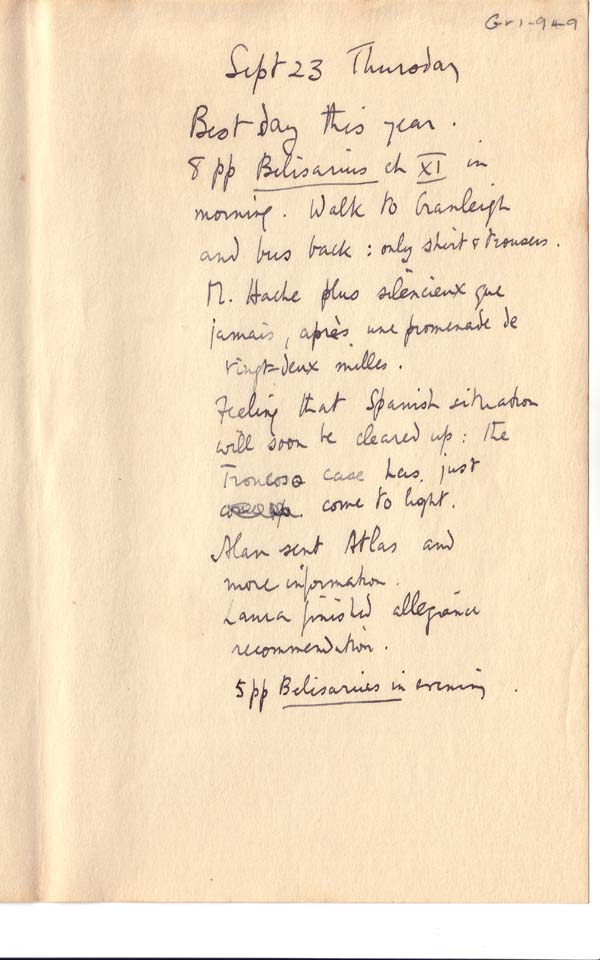 Gr1-949
Sept 23 Thursday
Best day this year.
8 pp Belisarius ch XI in
morning. Walk to Cranleigh
and bus back: only shirt & trousers.
M. Hache plus silencieux que
jamais, après une promenade de
vingt-deux milles.
Feeling that Spanish situation
will soon be cleared up: the
Troncoso case has just
come to light.
Alan sent Atlas and
more information.
Laura finished allegiance
recommendation.
5 pp Belisarius in evening.